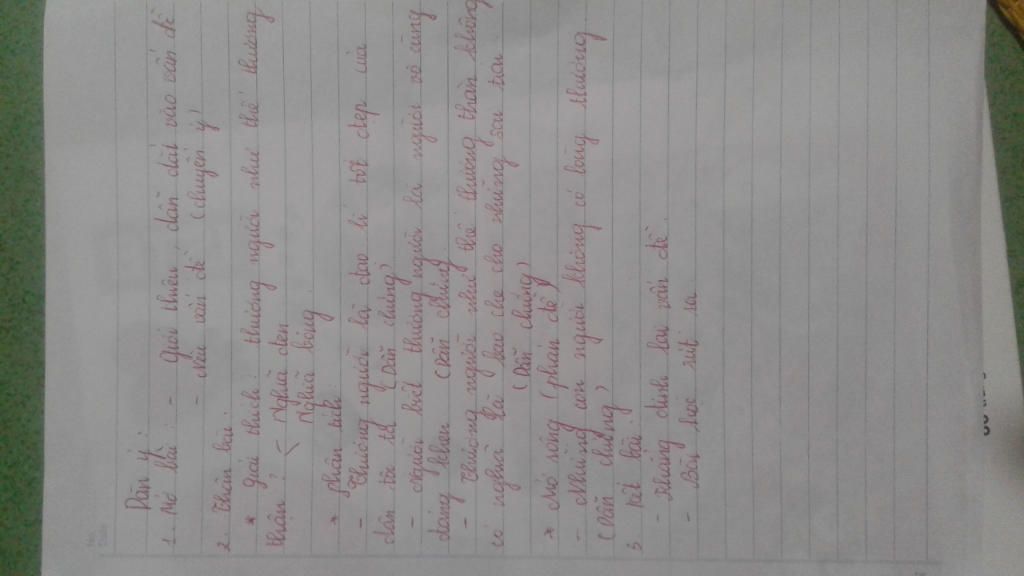 Dàn ý:
1. Mở bài: - Giới thiệu, dẫn dắt vào vấn đề
- Nêu vấn đề (chuyển ý)
2. Thân bài:
* Giải thích: thương người như thể thương
thân:
< Nghĩa đen
Nghĩa bóng
* Phân tích
- Thương người là đạo lí tốt đẹp của
dân tộc ta (Dẫn chứng)
- Người biết thương người là người vô cùng
đáng khen (Dẫn chứng)
- Thương người như thể thương thân không
có nghĩa là bao che cho những sai trái
(Dẫn chứng)
* Mở rộng (phản đề)
- Những con người không có lòng thương
(Dẫn chứng)
3 Kết bài:
- Khẳng định lại vấn đề
- Bài học rút ra